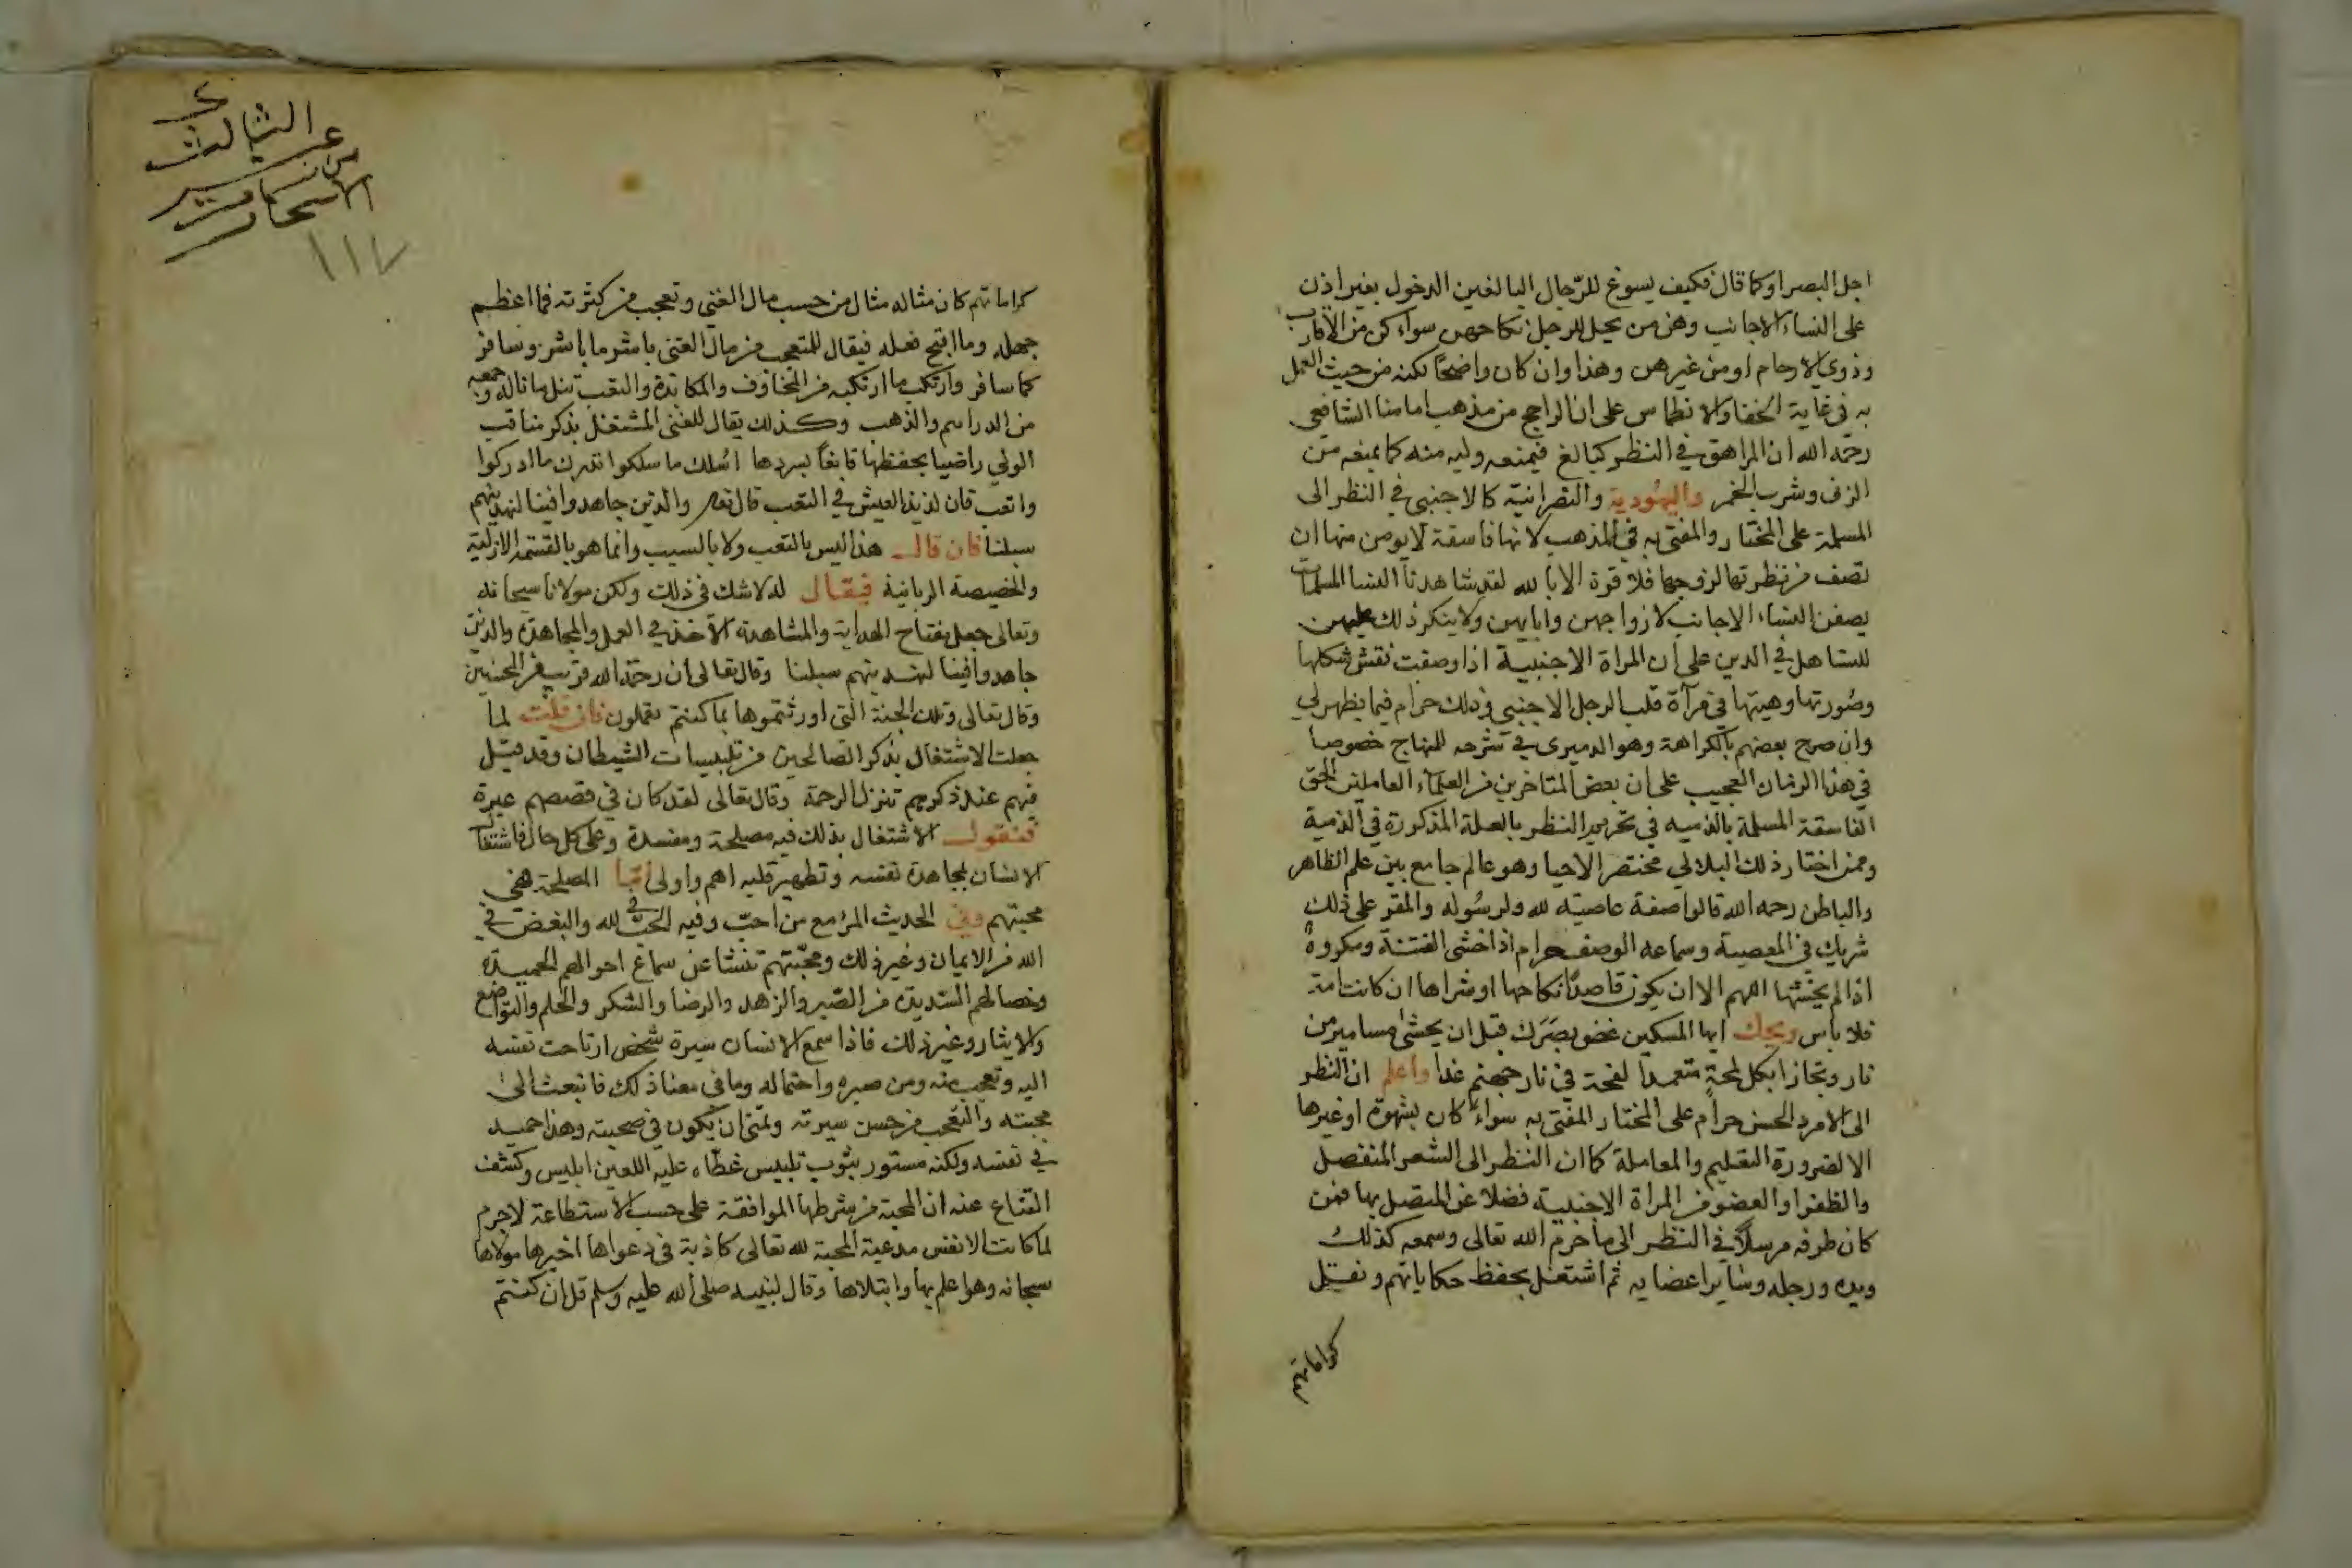 اجل البصر اوكما قال فكيف يسوغ للرّجال البالغين الدخول بغير اذن
على النساء الاجانب وهن من يحل للرجل نكاحهن سواء كن من الاقارب
وذوي الارحام او من غيرهن وهذا وان كان واضحًا لكنه من حيث العمل
به في غاية الخفا والانطماس على ان الراجح من مذهب امامنا الشافعي
رحمه الله ان المراهق في النظر كبالغ فيمنعه وليه منه كما يمنعه من
الزنى وشرب الخمر واليهودية والنصرانية كالاجنبي في النظر الى
المسلمة على المختار والمفتى به في المذهب لانها فاسقة لا يومن منها ان
تصف من نظرتها لزوجها فلا قوة الا بالله لقد شاهدنا النسا المسلمات
يصفن النساء الاجانب لازواجهن وابايهن ولا ينكر ذلك عليهن
للتساهل في الدين على ان المراة الاجنبية اذا وصفت نقش شكلها
وصُورتها وهيتها في مرآة قلب الرجل الاجنبي وذلك حرام فيما يظهر لي
وان صرح بعضهم بالكراهة وهو الدميري في شرحه للمنهاج خصوصا
في هذا الزمان العجيب على ان بعض المتاخرين من العلماء العاملين الحق
الفاسقة المسلمة بالذميه في تحريم النظر بالعلة المذكورة في الذمية
وممن اختار ذلك البلالي مختصر الاحيا وهو عالم جامع بين علم الظاهر
والباطن رحمه الله قالوا صفة عاصيته لله ولرسُوله والمقر على ذلك
شريك في المعصية وسماعه الوصف حرام اذا خشى الفتنة ومكروهٌ
اذا لم يخشها اللهم الا ان يكون قاصدًا نكاحها او شراها ان كانت امة
فلا باس ويحك ايها المسكين غض بصَرَك قبل ان يحشى مسامير من
نار وتجازا بكل لمحةٍ متعمدا لفحة في نار جهنم غدا واعلم ان النظر
الى الامرد الحسن حرام على المختار المفتى به سواء كان بشهوة او غيرها
الا لضرورة التعليم والمعاملة كما ان النظر الى الشعر المنفصل
والظفر او العضو من المراة الاجنبية فضلا عن المتصل بها فمن
كان طرفه مرسلًا في النظر الى ما حرم الله تعالى وسمعه كذلك
ويده ورجله وساير اعضايه ثم اشتغل بحفظ حكاياتهم ونقل
كراماتهم
الثالث عشر
من مسامير
الاسحار
١١٧
كراماتهم كان مثاله مثال من حسب مال الغني وتعجب من كثرته فما اعظم
جهله وما اقبح فعله فيقال للمتعجب من مال الغنى باشر ما باشر وسافر
كما سافر وارتكب ما ارتكبه من المخاوف والمكابدة والتعب تنل ما ناله وجمعه
من الدراهم والذهب وكذلك يقال للفتى المشتغل بذكر مناقب
الولي راضيا بحفظها قانعًا بسردها اسلك ما سلكوا تدرك ما ادركوا
واتعب فان لذيذ العيش في التعب قال تعالى والذين جاهدوا فينا لنهدينهم
سبلنا فان قال هذا ليس بالتعب ولا بالسبب وانما هو بالقسمة الازلية
والخصيصة الربانية فيقال له لا شك في ذلك ولكن مولانا سبحانه
وتعالى جعل مفتاح الهداية والمشاهدة الآخذ في العمل والمجاهدة والذين
جاهدوا فينا لنهدينهم سبلنا وقال تعالى ان رحمة الله قريب من المحسنين
وقال تعالى وتلك الجنة التي اورثتموها بما كنتم تعملون فان قلت لما
جعلت الاشتغال بذكر الصالحين من تلبيسات الشيطان وقد قيل
فيهم عند ذكرهم تنزل الرحمة وقال تعالى لقد كان في قصصهم عبرة
فنقول الاشتغال بذلك فيه مصلحة ومفسدة وعلى كل حال فاشتغال
الانسان بمجاهدة نفسه وتطهير قلبه اهم واولى امّا المصلحة فهي
محبتهم وفي الحديث المرء مع من احبّ وفيه الحبّ في الله والبغض في
الله من الايمان وغير ذلك ومحبّتهم تنشا عن سماع احوالهم الحميدة
وخصالهم السديدة من الصّبر والزهد والرضا والشكر والحلم والتواضع
والايثار وغير ذلك فاذا سمع الانسان سيرة شخص ارتاحت نفسه
اليه وتعجب منه ومن صبره واحتماله وما في معنا ذلك فانبعث الى
محبته والتعجب من حسن سيرته وتمنى ان يكون في صحبته وهذا حميد
في نفسه ولكنه مستور بثوب تلبيس غطاه عليه اللعين ابليس وكشف
القناع عنه ان المحبة من شرطها الموافقة على حسب الاستطاعة لاجرم
لما كانت الانفس مدعية المحبة لله تعالى كاذبة في دعواها اخبرها مولاها
سبحانه وهو اعلم بها وابتلاها وقال لنبيه صلى الله عليه وسلم قل ان كنتم